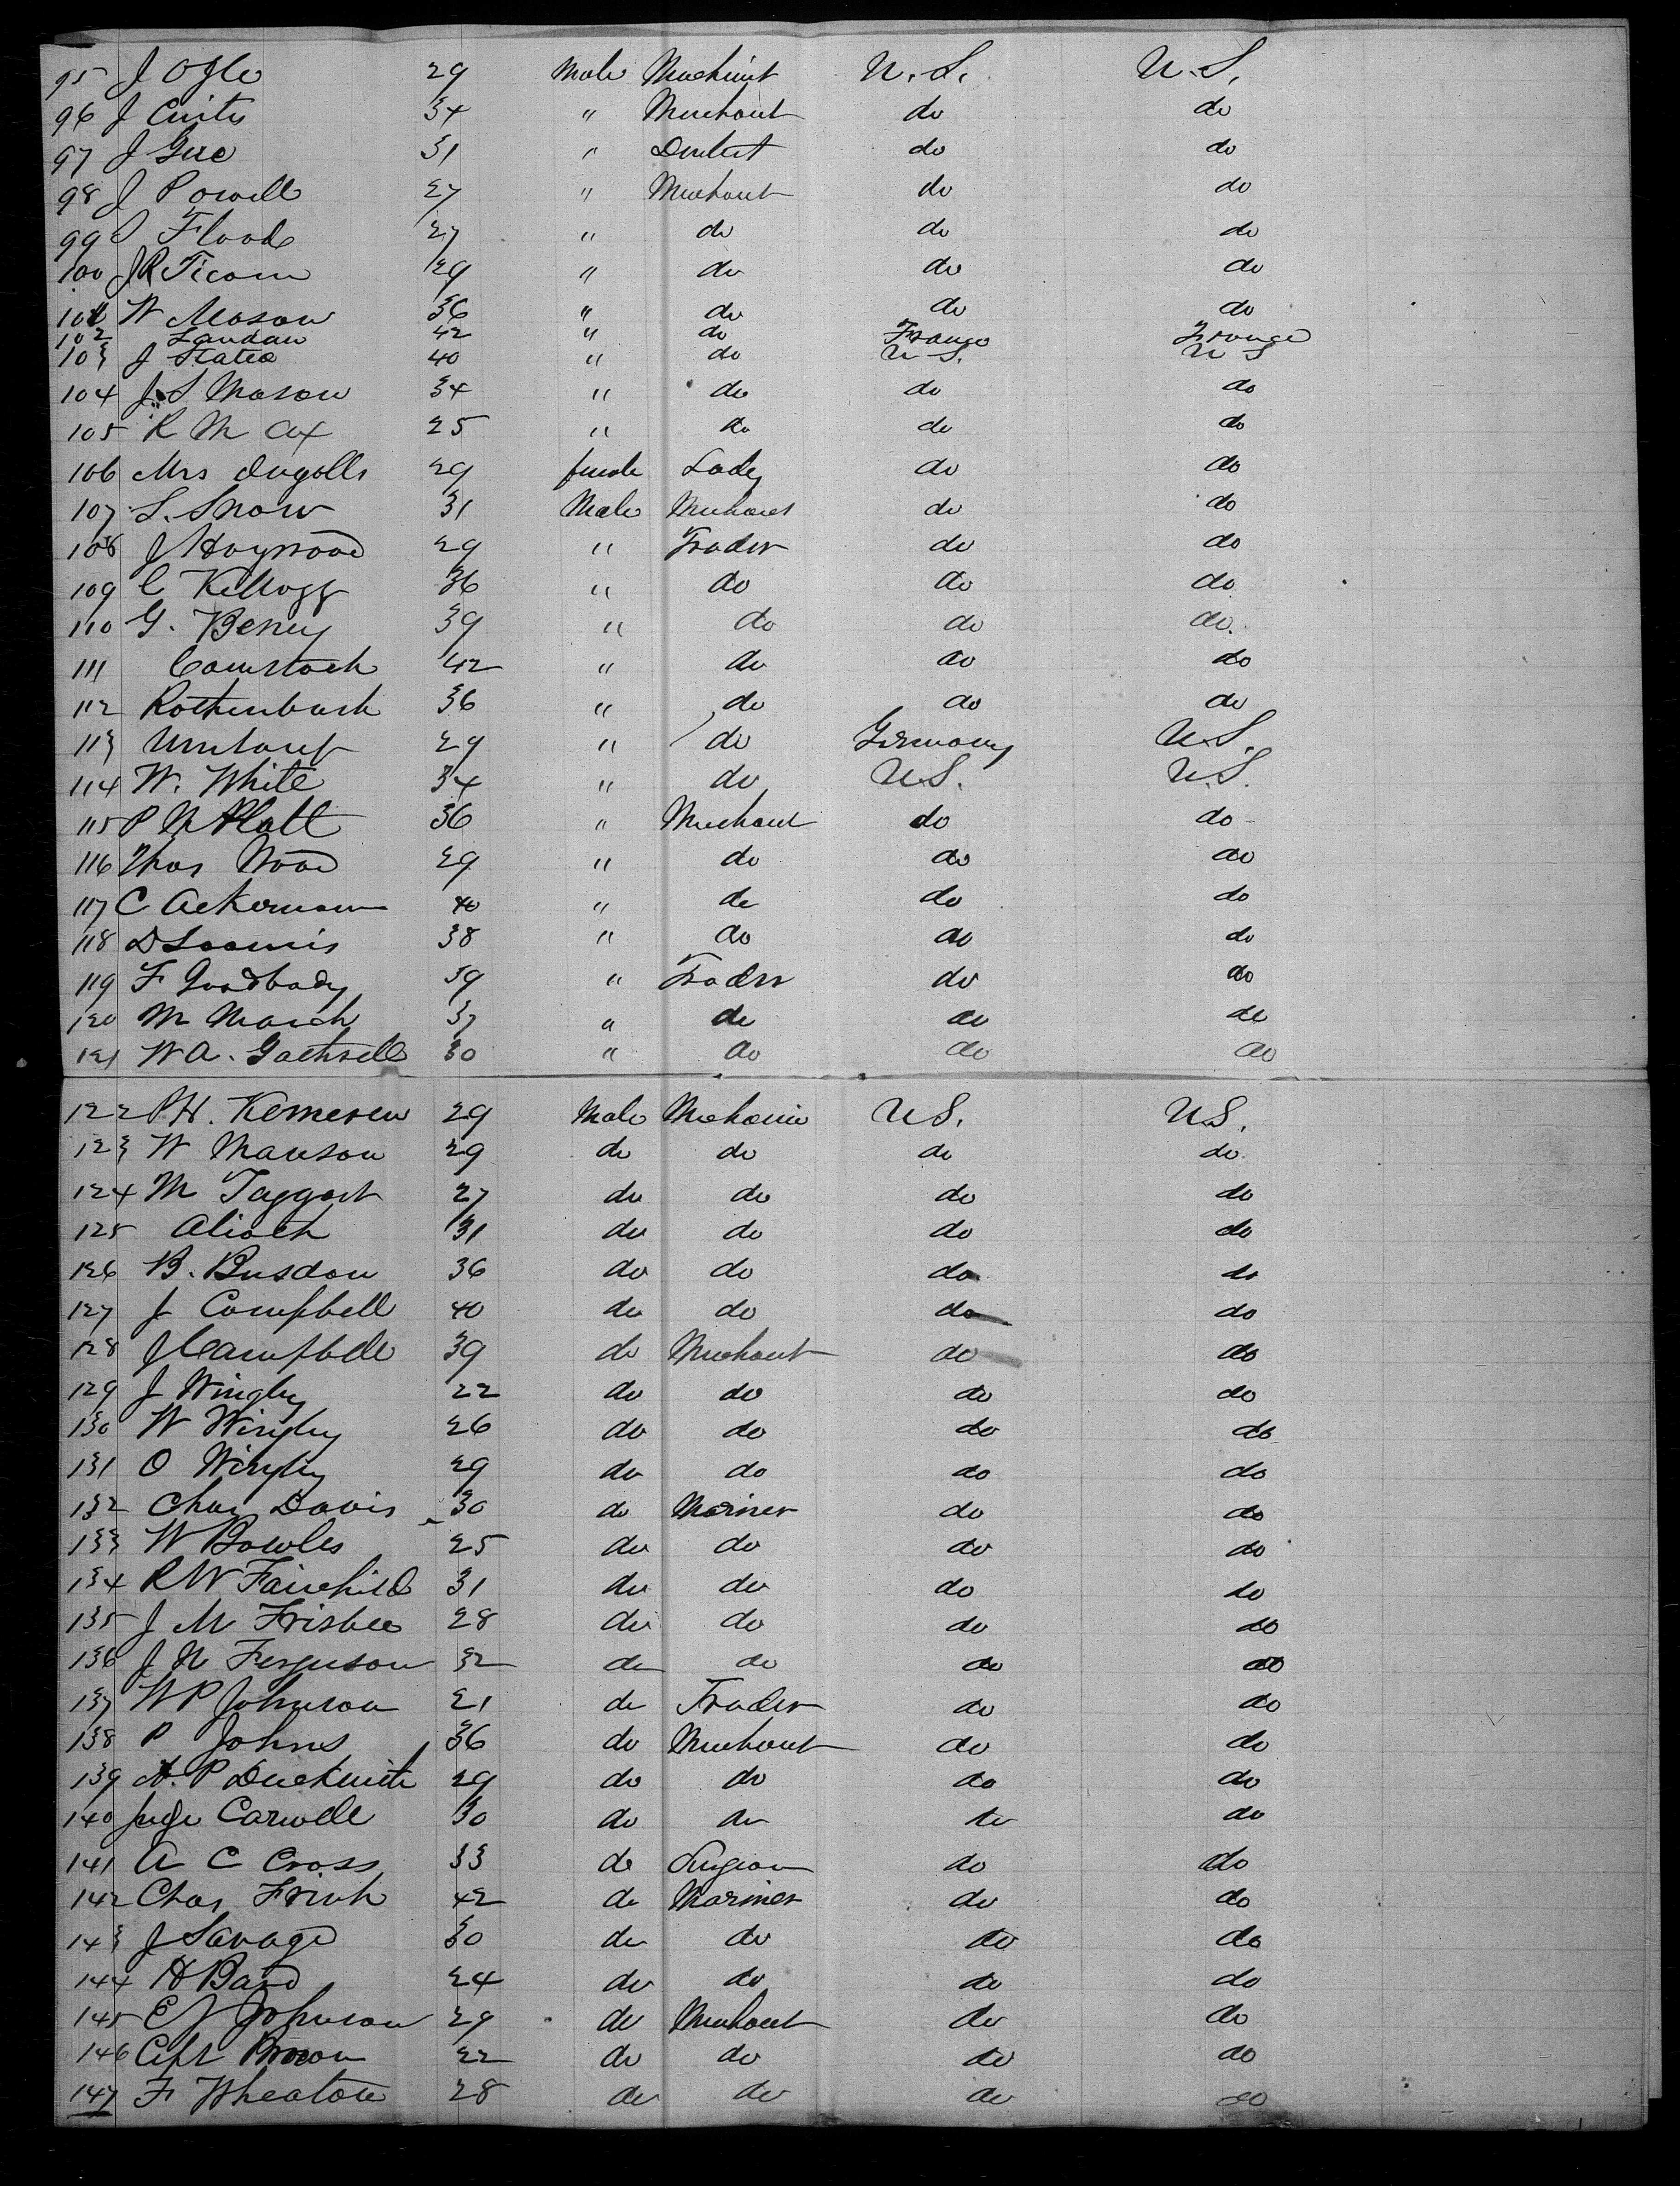 95 J Ogle 29 Male Machinist U.S. U.S.
96 J Curtis 34 " Merchant do do
97 J Gue 31 " Dentist do do
98 J Powell 27 " Merchant do do
99 Flood 27 " do do do
100 J R Ticom 29 " do do do
101 W Mason 36 " do do do
102 Landau 42 " do France France
103 J States 40 " do U S. U S
104 J. S Mason 34 " do do do
105 R M 25 " do do do
106 Mrs Ingolls 29 female Lady do do
107 S. Snow 31 Male Merchant do do
108 J Haywood 29 " Trader do do
109 C Kellogg 36 " do do do
110 G. Beney 39 " do do do.
111 Comstock 42 " do do do
112 Rothenbush 36 " do do do
113 29 " do Germany U.S.
114 W. White 34 " do U.S. U.S.
115 P Platt 36 " Merchant do do
116 Thos Wood 29 " do do do
117 C Ackerman 40 " do do do
118 D Loomis 38 " do do do
119 F Goodbody 39 " Trader do do
120 M March 37 " do do do
121 W A. Gatchell 30 " do do do
122 P H. 29 Male Mechanic U S. U S.
123 W Manson 29 do do do do
124 M Taggart 27 do do do do
125 31 do do do do
126 B. Busdon 36 do do do do
127 J Campbell 40 do do do do
128 J Campbell 39 do Merchant do do
129 J Wingley 22 do do do do
130 W Wingley 26 do do do do
131 O Wingley 29 do do do do
132 Chas Davis 30 do Mariner do do
133 W Bowles 25 do do do do
134 R W Fairchild 31 do do do do
135 J M Frisbee 28 do do do do
136 J N Ferguson 32 do do do do
137 W P Johnson 21 do Trader do do
138 P Johns 36 do Merchant do do
139 A. P Duckwith 29 do do do do
140 Judge Carwell 30 do do do do
141 A C Cross 33 do Surgeon do do
142 Chas Frink 42 do Mariner do do
143 J Savage 30 do do do do
144 H Band 24 do do do do
145 E J Johnson 29 do Merchant do do
146 Capt Brown 22 do do do do
147 F Wheaton 28 do do do do